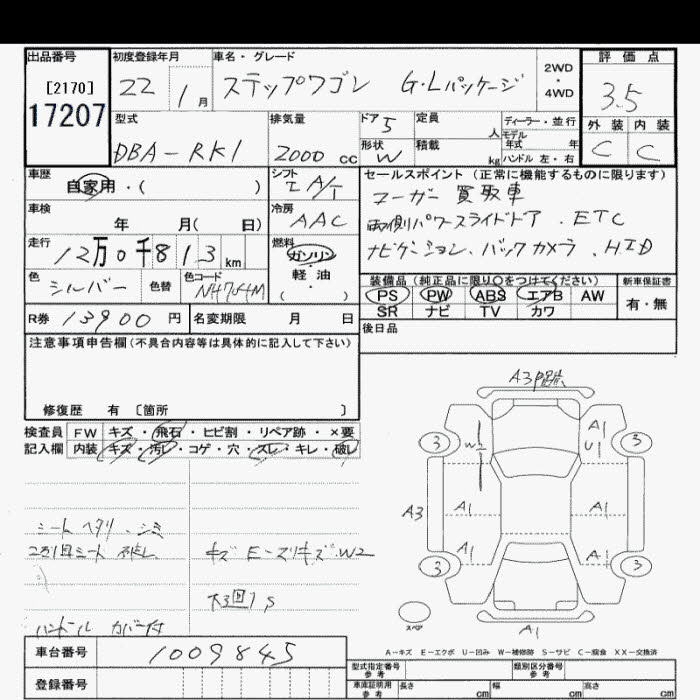 出品番号
[2170]
17207
初度登録年月
22 1月
車名・グレード
ステップワゴン G・Lパッケージ
2WD
・
4WD
評価点
3.5
外装 内装
C C
型式
DBA-RK1
排気量
2000 cc
ドア 5
形状 W
定員
人
積載
kg
ディーラー・並行
モデル
年式 年
ハンドル 左・右
車歴
自家用・( )
シフト
I A/T
車検
年 月( 日)
冷房
AAC
走行
12万0千813 km
燃料
ガソリン
軽・油
( )
色
シルバー
色替
色コード
NH704M
セールスポイント(正常に機能するものに限ります)
ユーザー買取車
両側パワースライドドア.ETC
ナビゲーション.バックカメラ.HID
装備品(純正品に限り○をつけてください)
新車保証書
PS PW ABS エアB AW
SR ナビ TV カワ
有・無
R券 13900 円
名変期限 月 日
後日品
注意事項申告欄(不具合内容等は具体的に記入して下さい)
修復歴 有 〔箇所 〕
検査員
記入欄
FW キズ・飛石・ヒビ割・リペア跡・×要
内装 キズ・汚レ・コゲ・穴・スレ・キレ・破レ
シートヘタリ.シミ
2列目シート 破れ
ハンドル カバー付
キズ E-スリキズ.W2
大3回1S
A3
3
W2
A1
U1
3
A3
A1
A1
A1
A1
3
3
スペア
A1
A-キズ E-エクボ U-凹み W-補修跡 S-サビ C-腐食 XX-交換済
車台番号
1009845
登録番号
型式指定番号
参考
類別区分番号
参考
車庫証明用
参考
長さ cm
幅 cm
高さ cm